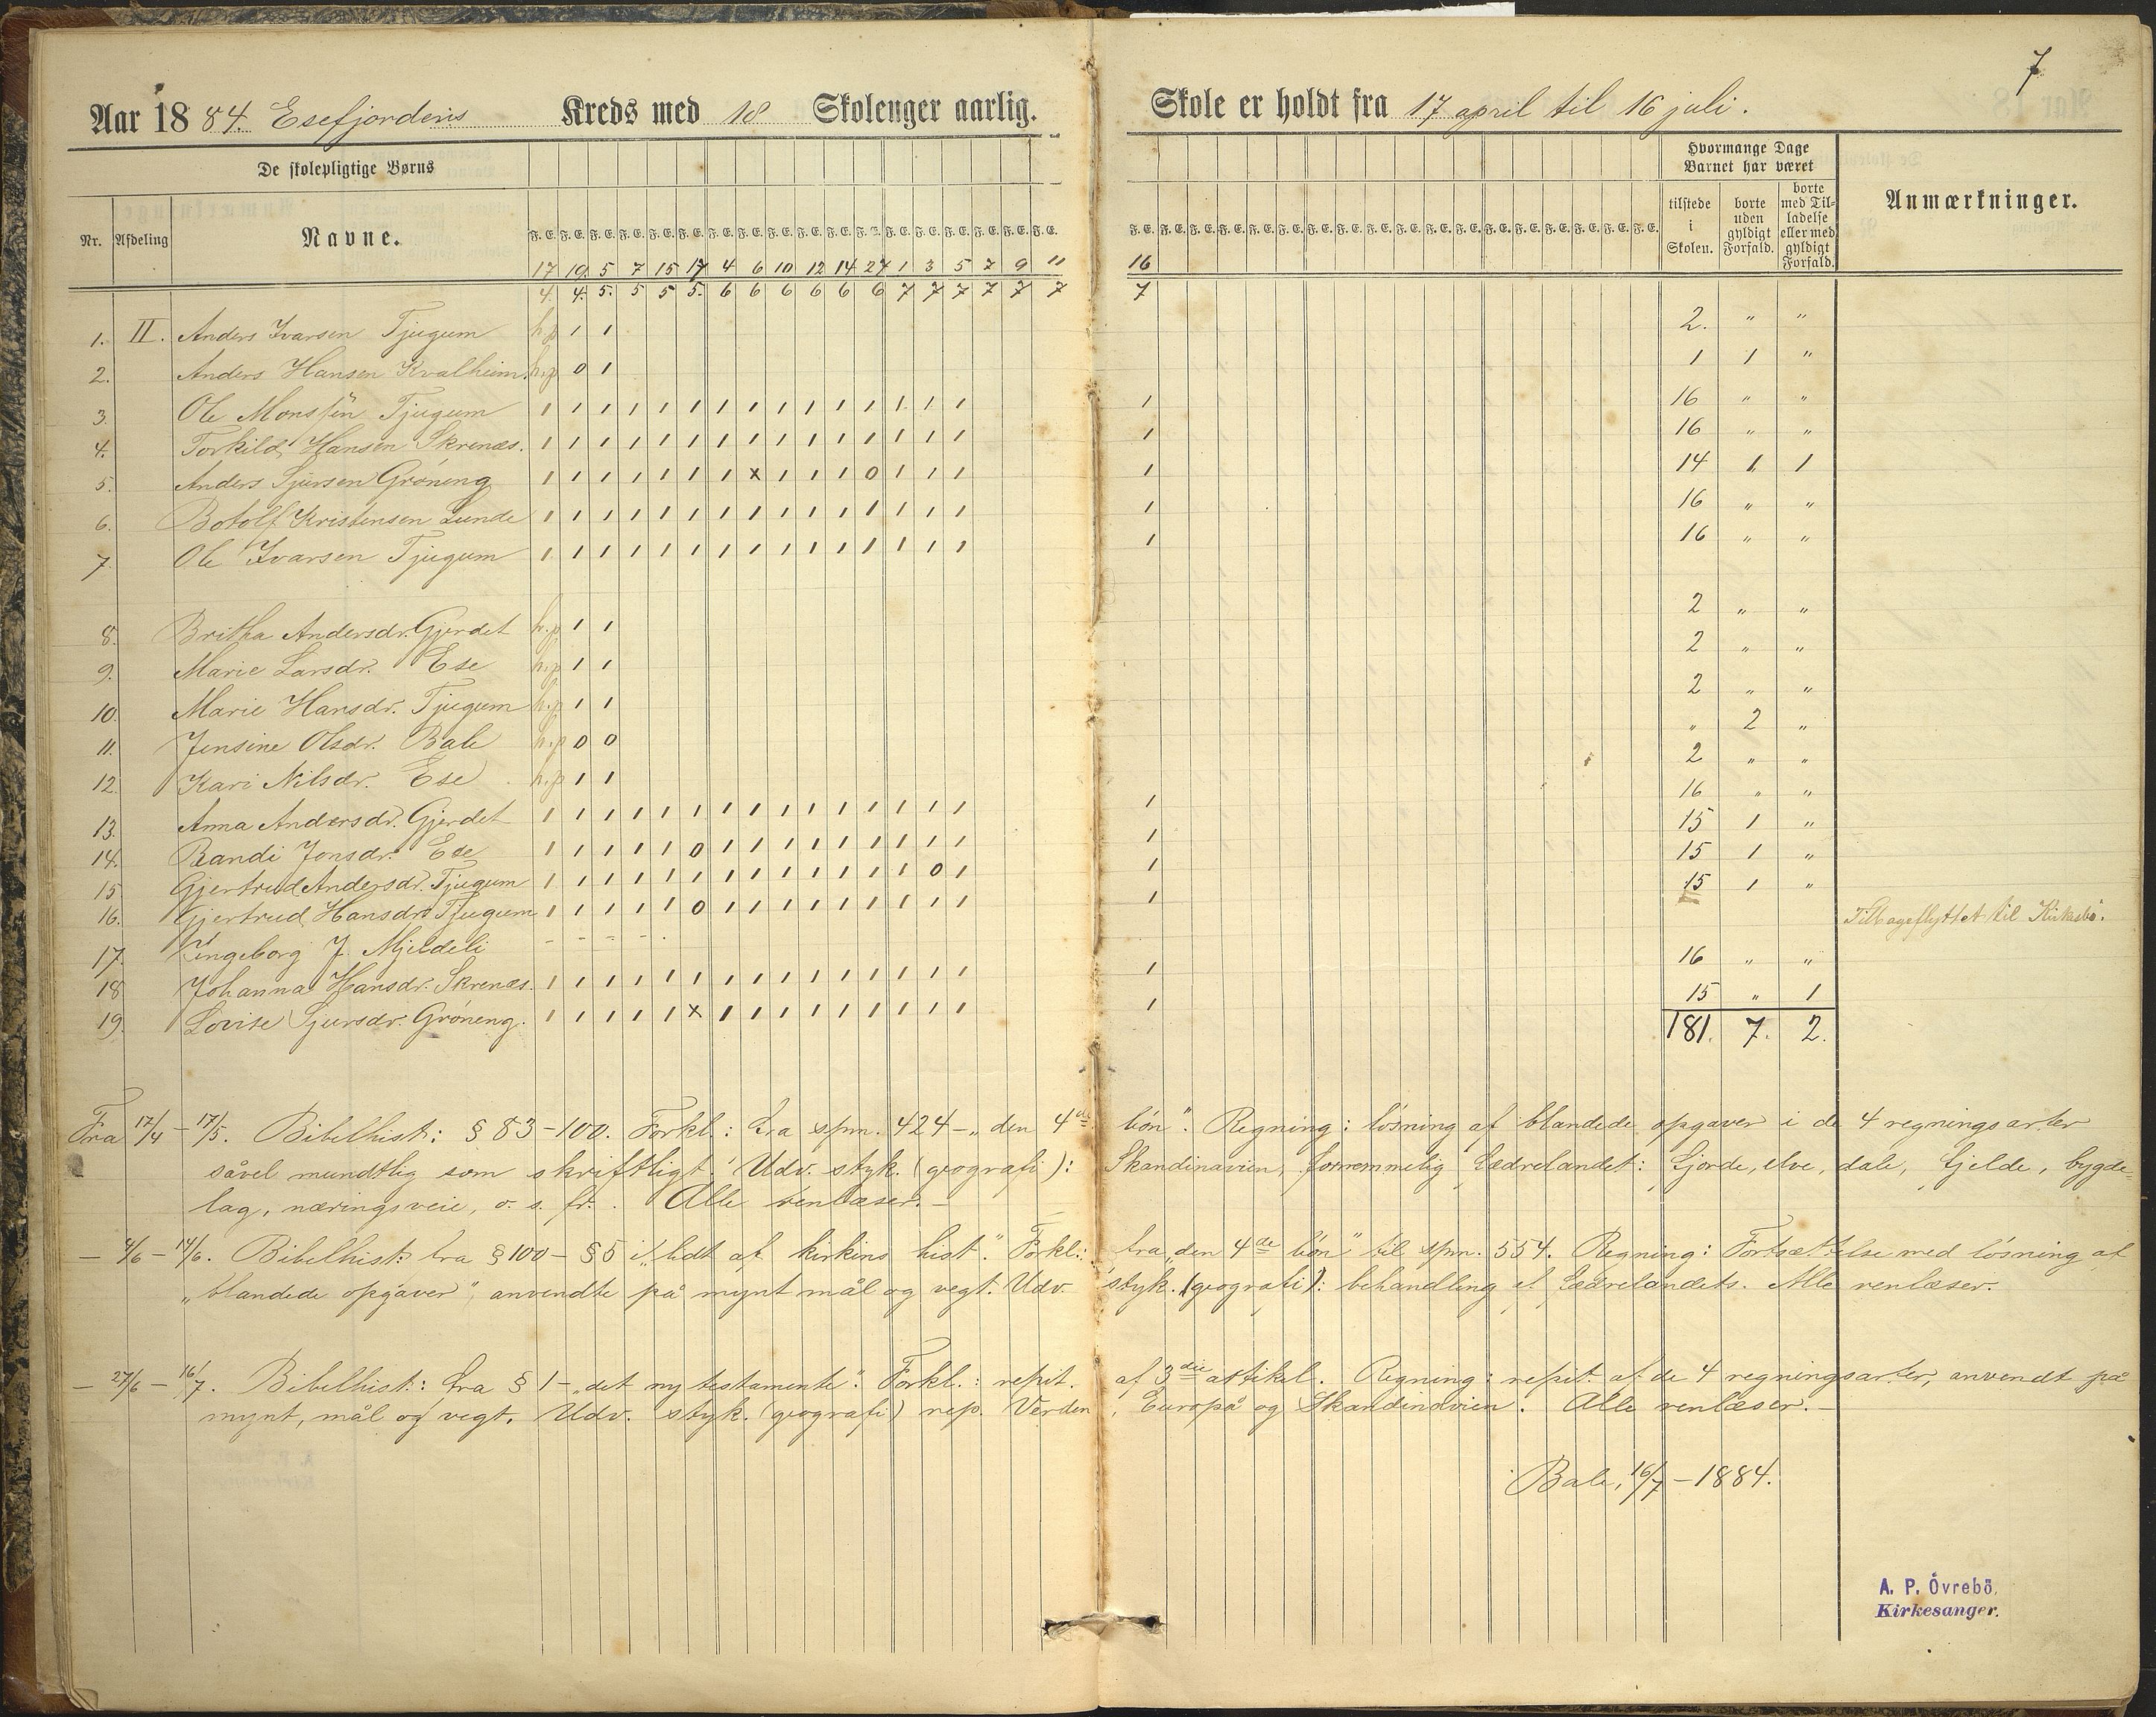 7
Aar 1884. Esefjordens Kreds med 18 Skoleuger aarlig. Skole er holdt fra 17 april til 16 juli.
De skolepligtige Børns
Hvormange Dage Barnet har været
Nr. Afdeling Navne.
F. E. F. E. F. E. F. E. F. E. F. E. F. E. F. E. F. E. F. E. F. E. F. E. F. E. F. E. F. E. F. E. F. E. F. E.
F. E. F. E. F. E. F. E. F. E. F. E. F. E. F. E. F. E. F. E. F. E. F. E. F. E. F. E. F. E. F. E. F. E. F. E.
tilstede i Skolen. borte uden gyldigt Forfald. borte med Tilladelse eller med gyldigt Forfald. Anmærkninger.
17 19 5 7 15 17 4 6 10 12 14 27 1 3 5 7 9 11 16
4. 4. 5. 5 5 5. 6 6 6 6 6 6 7 7 7 7 7 7 7
1. II. Anders Ivarsen Tjugum h.p 1 1 2. " "
2. Anders Hansen Kvalheim. h.p 0 1 1 1 "
3. Ole Monssen Tjugum 1 1 1 1 1 1 1 1 1 1 1 1 1 1 1 1 16 " "
4. Torkild Hansen Skrenæs. 1 1 1 1 1 1 1 1 1 1 1 1 1 1 1 1 16 " "
5. Anders Sjursen Gröneng 1 1 1 1 1 1 1 x 1 1 1 0 1 1 1 1 14 1 1
6. Botolf Kristensen Lunde 1 1 1 1 1 1 1 1 1 1 1 1 1 1 1 1 16 " "
7. Ole Ivarsen Tjugum 1 1 1 1 1 1 1 1 1 1 1 1 1 1 1 1 16 " "
8. Britha Andersdr. Gjerdet h.p 1 1 2 " "
9. Marie Larsdr. Ese h.p 1 1 2 " "
10. Marie Hansdr. Tjugum h.p 1 1 2 " "
11. Jensine Olsdr. Bale h.p 0 0 " 2 "
12. Kari Nilsdr. Ese h.p 1 1 2 " "
13. Anna Andersdr. Gjerdet 1 1 1 1 1 1 1 1 1 1 1 1 1 1 1 1 16 " "
14. Randi Jonsdr. Ese 1 1 1 1 1 0 1 1 1 1 1 1 1 1 1 1 15 1 "
15 Gjertrud Andersdr. Tjugum 1 1 1 1 1 1 1 1 1 1 1 1 1 0 1 1 15 1 "
16. Gjertrud Hansdr. Tjugum 1 1 1 1 1 0 1 1 1 1 1 1 1 1 1 1 15 1 "
17. Ingeborg J. Mjeldeli - - - - - Tilbageflyttet til Kirkebø.
18 Johanna Hansdr. Skrenæs. 1 1 1 1 1 1 1 1 1 1 1 1 1 1 1 1 16 " "
19. Lovise Sjursdr. Gröneng. 1 1 1 1 1 x 1 1 1 1 1 1 1 1 1 1 15 " 1
181. 7. 2.
Fra 17/4 - 17/5. Bibelhist: § 83-100. Forkl: fra spm. 424 - „den 4de bön". Regning: lösning af blandede opgaver i de 4 regningsarter
såvel mundtlig som skriftligt. Udv. styk. (geografi): Skandinavien, fornemmelig fædrelandet: fjorde, elve, dale, fjelde, bygde-
lag, næringsveie, o. s. fr. Alle renlæser. -
- 4/6 - 14/6. Bibelhist: fra § 100 - § 5 i „lidt af kirkins hist." Forkl.: fra „den 4de bön" til spm. 554. Regning: Fortsættelse med lösning af
„blandede opgaver" anvendte på mynt mål og vegt. Udv. styk. (geografi): behandling af fædrelandets. Alle renlæser.
- 27/6 - 16/7. Bibelhist: fra § 1 - „det ny testamente". Forkl.: repit. af 3die artikel. Regning: repit. af de 4 regningsarter, anvendt på
mynt, mål og vegt. Udv. styk. (geografi) rep. Verden, Europa og Skandinavien. Alle renlæser. -
Bale, 16/7 - 1884.
A. P. Övrebö.
Kirkesanger.